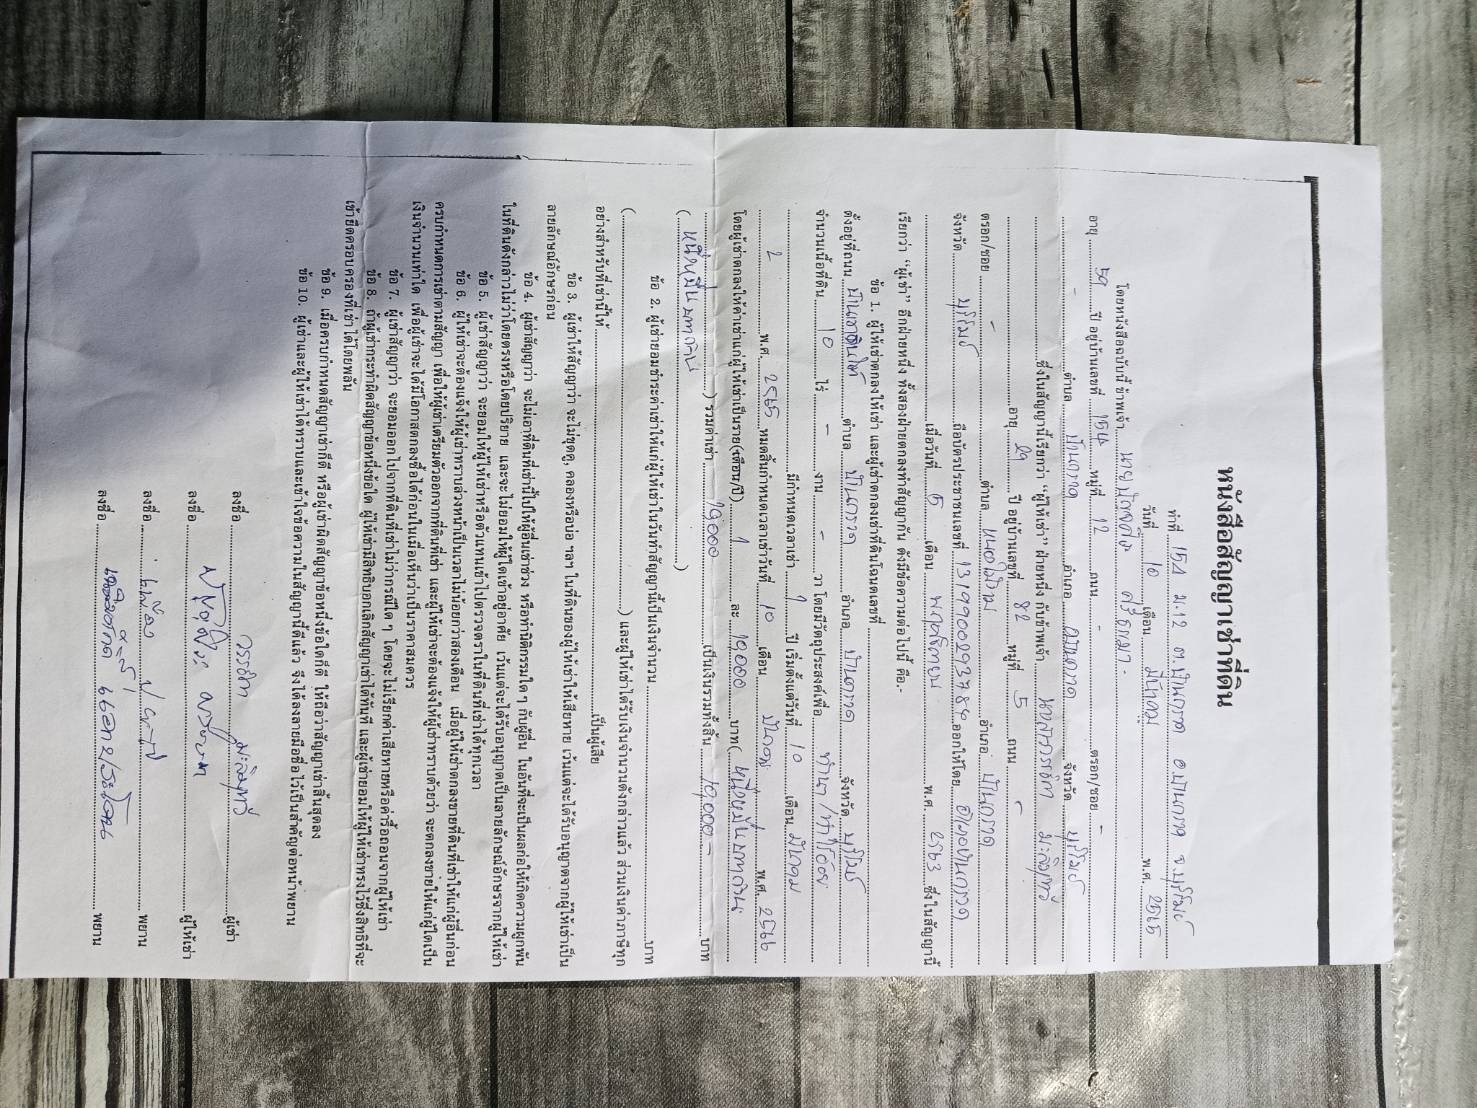 หนังสือสัญญาเช่าที่ดิน
ทำที่ 154 ม.12 ต.บ้านกรวด อ.บ้านกรวด จ.บุรีรัมย์
วันที่ 10 เดือน พ.ศ. 2565
โดยหนังสือฉบับนี้ ข้าพเจ้า นาย
อายุ 59 ปี อยู่บ้านเลขที่ 154 หมู่ที่ 12 ถนน - ตรอก/ซอย -
- ตำบล บ้านกรวด อำเภอ บ้านกรวด จังหวัด บุรีรัมย์
ซึ่งในสัญญานี้เรียกว่า "ผู้ให้เช่า" ฝ่ายหนึ่ง กับข้าพเจ้า
อายุ 29 ปี อยู่บ้านเลขที่ 82 หมู่ที่ 5 ถนน -
ตรอก/ซอย - ตำบล หนองไม้งาม อำเภอ บ้านกรวด
จังหวัด บุรีรัมย์ ถือบัตรประชาชนเลขที่ ออกให้โดย อำเภอบ้านกรวด
เมื่อวันที่ 5 เดือน พฤศจิกายน พ.ศ. 2563 ซึ่งในสัญญานี้
เรียกว่า "ผู้เช่า" อีกฝ่ายหนึ่ง ทั้งสองฝ่ายตกลงทำสัญญากัน ดังมีข้อความต่อไปนี้ คือ.-
ข้อ 1. ผู้ให้เช่าตกลงให้เช่า และผู้เช่าตกลงเช่าที่ดินโฉนดเลขที่
ตั้งอยู่ที่ถนน ตำบล บ้านกรวด อำเภอ บ้านกรวด จังหวัด บุรีรัมย์
จำนวนเนื้อที่ดิน 10 ไร่ - งาน - วา โดยมีวัตถุประสงค์เพื่อ ทำนา/ทำไร่อ้อย
มีกำหนดเวลาเช่า 1 ปี เริ่มตั้งแต่วันที่ 10 เดือน มีนาคม
พ.ศ. 2565 หมดสิ้นกำหนดเวลาเช่าวันที่ 10 เดือน มีนาคม พ.ศ. 2566
โดยผู้เช่าตกลงให้ค่าเช่าแก่ผู้ให้เช่าเป็นราย(เดือน/ปี) 1 ละ 10,000 บาท( หนึ่งหมื่นบาทถ้วน
) รวมค่าเช่า 10,000 เป็นเงินรวมทั้งสิ้น 10,000 - บาท
( หนึ่งหมื่นบาทถ้วน )
ข้อ 2. ผู้เช่ายอมชำระค่าเช่าให้แก่ผู้ให้เช่าในวันทำสัญญานี้เป็นเงินจำนวน บาท
( ) และผู้ให้เช่าได้รับเงินจำนวนดังกล่าวแล้ว ส่วนเงินค่าภาษีทุก
อย่างสำหรับที่เช่านี้ให้ เป็นผู้เสีย
ข้อ 3. ผู้เช่าให้สัญญาว่า จะไม่ขุดคู, คลองหรือบ่อ ฯลฯ ในที่ดินของผู้ให้เช่าให้เสียหาย เว้นแต่จะได้รับอนุญาตจากผู้ให้เช่าเป็น
ลายลักษณ์อักษรก่อน
ข้อ 4. ผู้เช่าสัญญาว่า จะไม่เอาที่ดินที่เช่านี้ไปให้ผู้อื่นเช่าช่วง หรือทำนิติกรรมใด ๆ กับผู้อื่น ในอันที่จะเป็นผลก่อให้เกิดความผูกพัน
ในที่ดินดังกล่าวไม่ว่าโดยตรงหรือโดยปริยาย และจะไม่ยอมให้ผู้ใดเข้าอยู่อาศัย เว้นแต่จะได้รับอนุญาตเป็นลายลักษณ์อักษรจากผู้ให้เช่า
ข้อ 5. ผู้เช่าสัญญาว่า จะยอมให้ผู้ให้เช่าหรือตัวแทนเข้าไปตรวจตราในที่ดินที่เช่าได้ทุกเวลา
ข้อ 6. ผู้ให้เช่าจะต้องแจ้งให้ผู้เช่าทราบล่วงหน้าเป็นเวลาไม่น้อยกว่าสองเดือน เมื่อผู้ให้เช่าตกลงขายที่ดินที่เช่าให้แก่ผู้อื่นก่อน
ครบกำหนดการเช่าตามสัญญา เพื่อให้ผู้เช่าเตรียมตัวออกจากที่ดินที่เช่า และผู้ให้เช่าจะต้องแจ้งให้ผู้เช่าทราบด้วยว่า จะตกลงขายให้แก่ผู้ใดเป็น
เงินจำนวนเท่าใด เพื่อผู้เช่าจะได้มีโอกาสตกลงซื้อได้ก่อนในเมื่อเห็นว่าเป็นราคาสมควร
ข้อ 7. ผู้เช่าสัญญาว่า จะยอมออกไปจากที่ดินที่เช่าไม่ว่ากรณีใด ๆ โดยจะไม่เรียกค่าเสียหายหรือค่ารื้อถอนจากผู้ให้เช่า
ข้อ 8. ถ้าผู้เช่ากระทำผิดสัญญาข้อหนึ่งข้อใด ผู้ให้เช่ามีสิทธิบอกเลิกสัญญาเช่าได้ทันที และผู้เช่ายอมให้ผู้ให้เช่าทรงไว้ซึ่งสิทธิที่จะ
เข้ายึดครอบครองที่เช่าได้โดยพลัน
ข้อ 9. เมื่อครบกำหนดสัญญาเช่าก็ดี หรือผู้เช่าผิดสัญญาข้อหนึ่งข้อใดก็ดี ให้ถือว่าสัญญาเช่าสิ้นสุดลง
ข้อ 10. ผู้เช่าและผู้ให้เช่าได้ทราบและเข้าใจข้อความในสัญญานี้ดีแล้ว จึงได้ลงลายมือชื่อไว้เป็นสำคัญต่อหน้าพยาน
ลงชื่อ ผู้เช่า
ลงชื่อ ผู้ให้เช่า
ลงชื่อ พยาน
ลงชื่อ พยาน